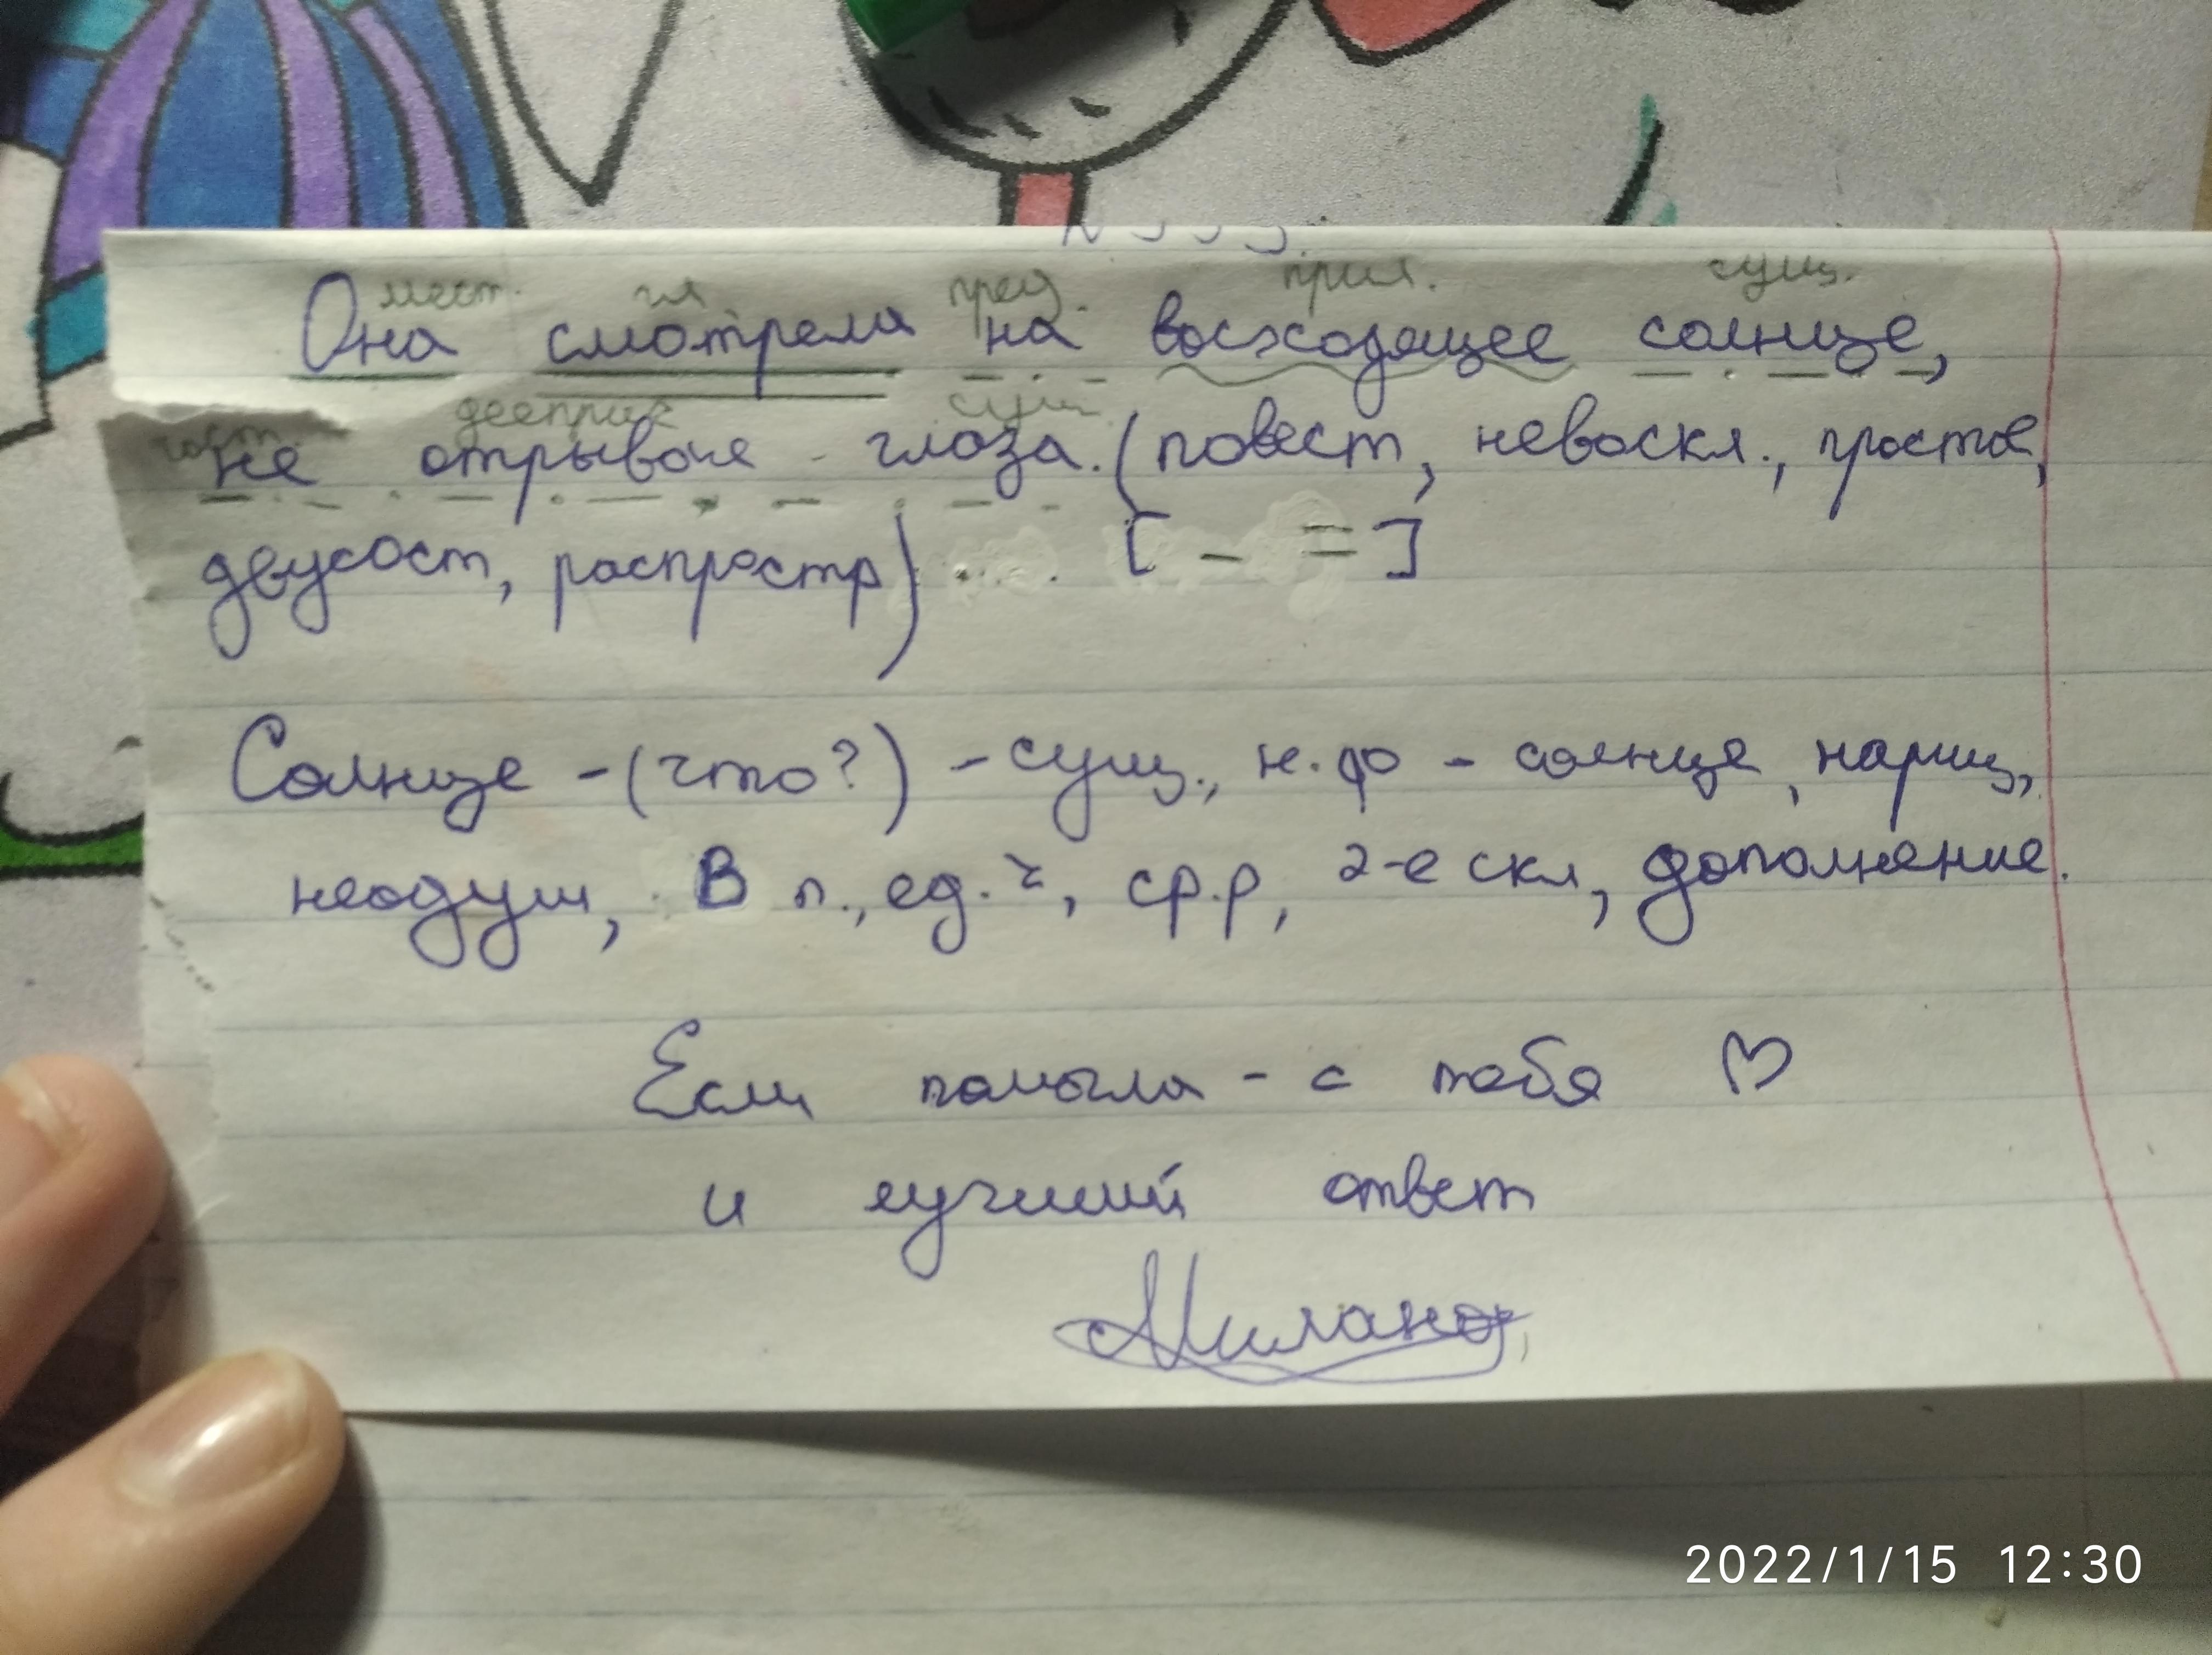 мест. гл. пред. прил. сущ.
Она смотрела на восходящее солнце,
част. дееприч сущ
не отрывая глаза. (повест, невоскл., простое,
двусост, распростр) [ _ = ]
Солнце - (что?) - сущ., н.ф - солнце, нариц,
неодуш, В п., ед. ч, ср.р, 2-е скл, дополнение.
Если помогла - с тебя ♡
и лучший ответ
Милана
2022/1/15 12:30